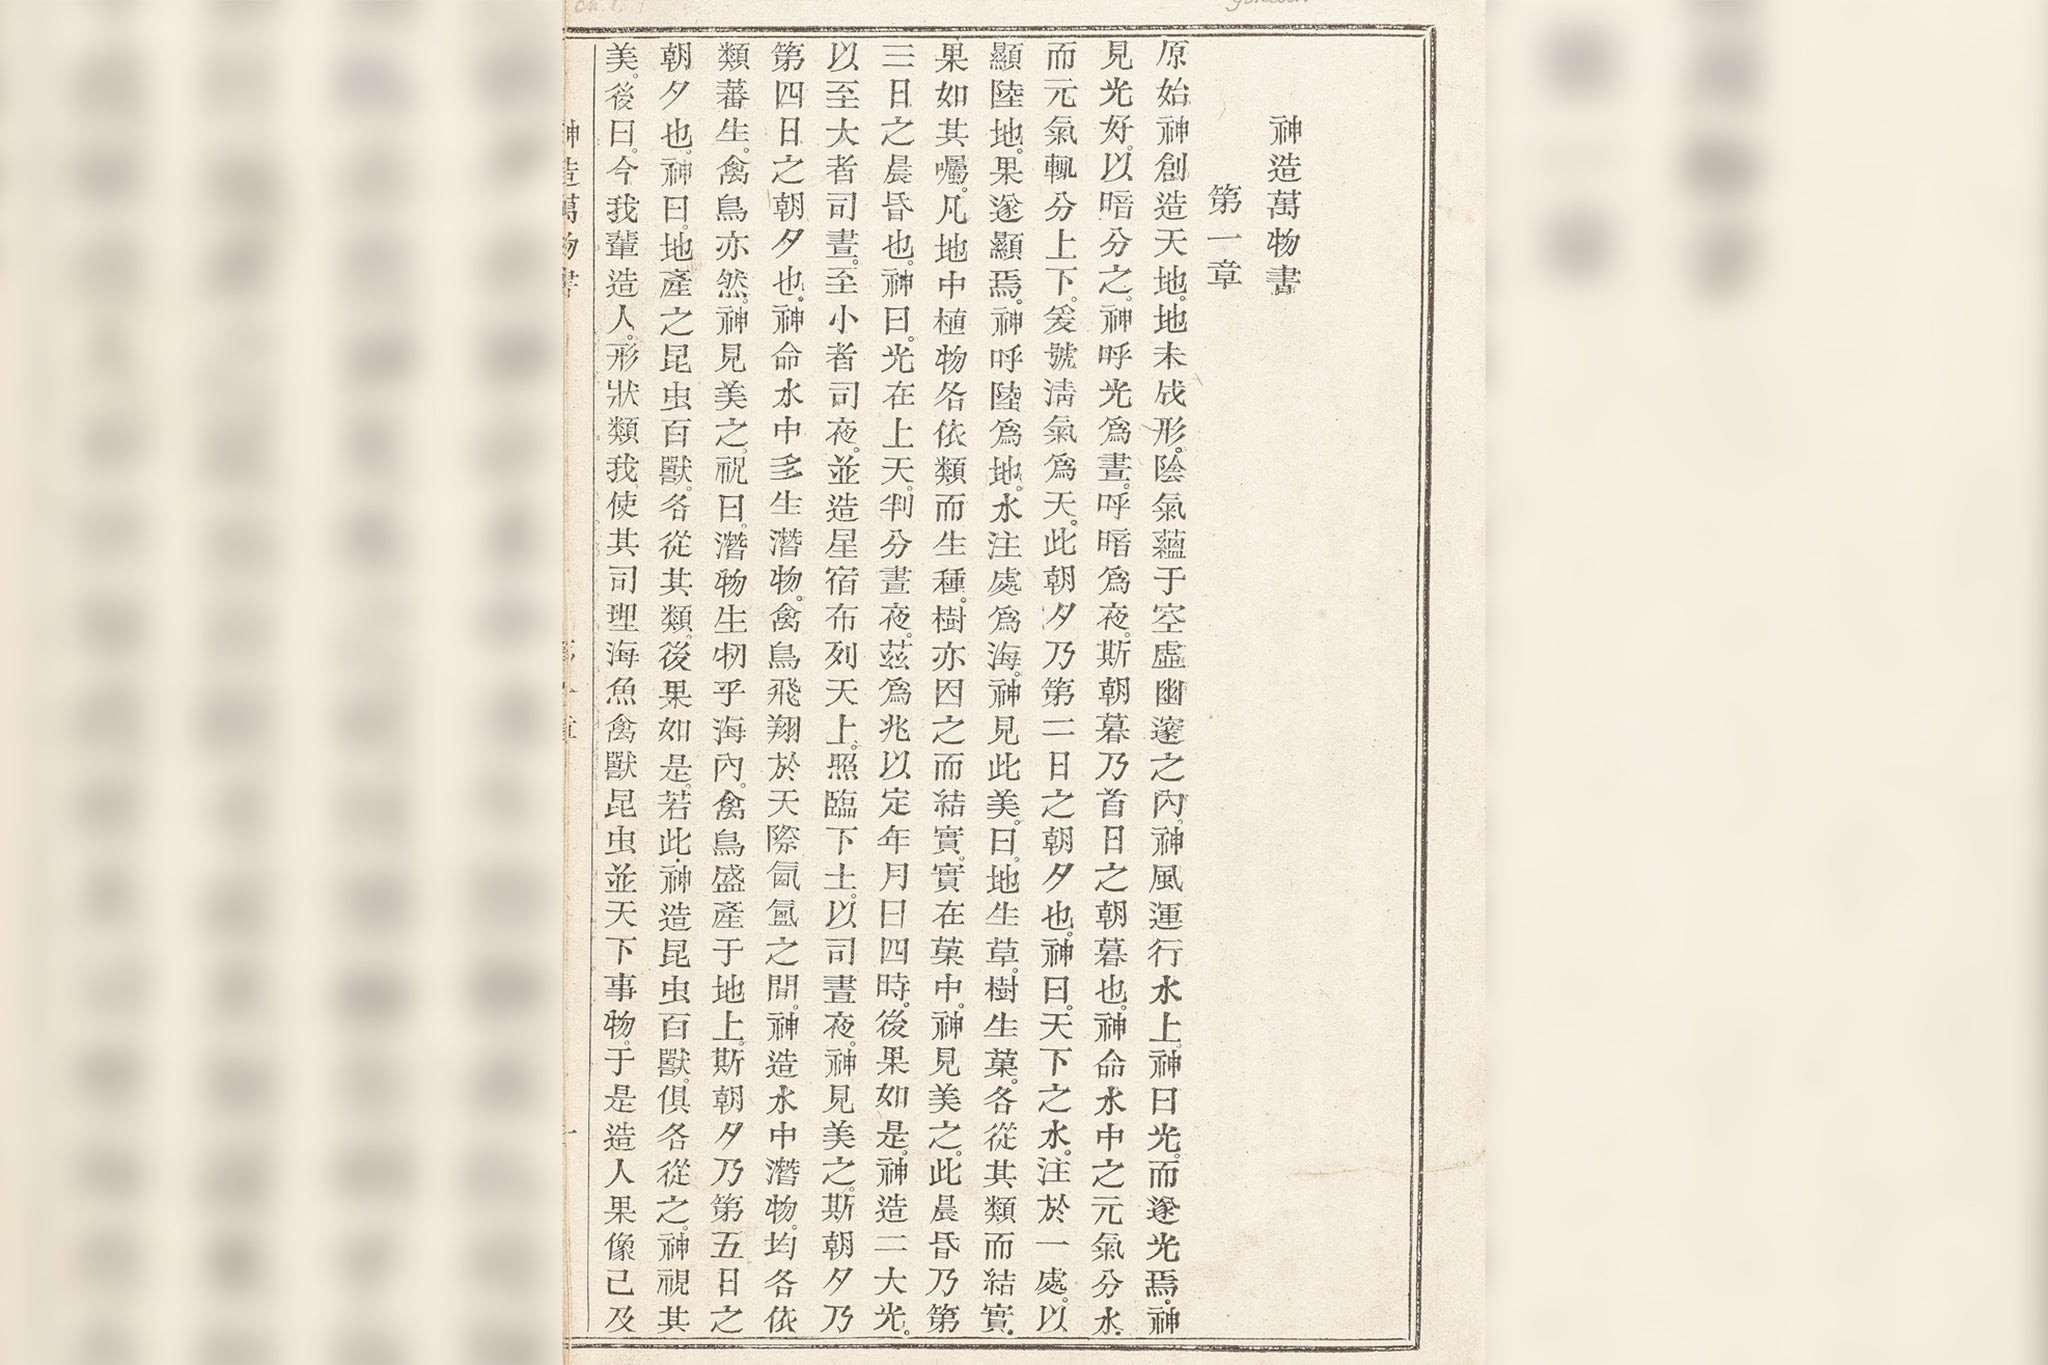 神造萬物書
第一章
原始神創造天地。地未成形。陰氣蘊于空虛幽邃之內。神風運行水上。神曰光。而遂光焉。神
見光好。以暗分之。神呼光爲晝。呼暗爲夜。斯朝暮乃首日之朝暮也。神命水中之元氣分水。
而元氣輒分上下。爰號淸氣爲天。此朝夕乃第二日之朝夕也。神曰。天下之水。注於一處。以
顯陸地。果遂顯焉。神呼陸爲地。水注處爲海。神見此美。曰。地生草。樹生菓。各從其類而結實。
果如其囑。凡地中植物各依類而生種。樹亦因之而結實。實在菓中。神見美之。此晨昏乃第
三日之晨昏也。神曰。光在上天。判分晝夜。茲爲兆以定年月日四時。後果如是。神造二大光。
以至大者司晝。至小者司夜。並造星宿布列天上。照臨下土。以司晝夜。神見美之。斯朝夕乃
第四日之朝夕也。神命水中多生潛物。禽鳥飛翔於天際氤氳之間。神造水中潛物。均各依
類蕃生。禽鳥亦然。神見美之。祝曰。潛物生牣乎海內。禽鳥盛產于地上。斯朝夕乃第五日之
朝夕也。神曰。地產之昆虫百獸。各從其類。後果如是。若此。神造昆虫百獸。俱各從之。神視其
美。後曰。今我輩造人。形狀類我。使其司理海魚禽獸昆虫並天下事物。于是造人果像己及